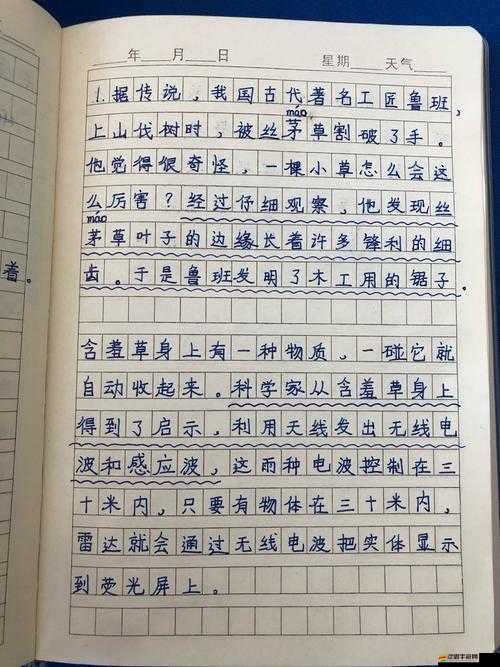 年 月 日 星期 天气
1.据传说，我国古代著名工匠鲁班，
máo
上山伐树时，被丝茅草割破了手。
他觉得很奇怪，一棵小草怎么会这
么厉害？经过仔细观察，他发现丝
máo
茅草叶子的边缘长着许多锋利的细
齿。于是鲁班发明了木工用的锯子。
着。
含羞草身上有一种物质，一碰它就
自动收起来。科学家从含羞草身上
得到了启示，利用天线发出无线电
波和感应波，这两种电波控制在三
十米内，只要有物体在三十米内，
雷达就会通过无线电波把实体显示
到荧光屏上。